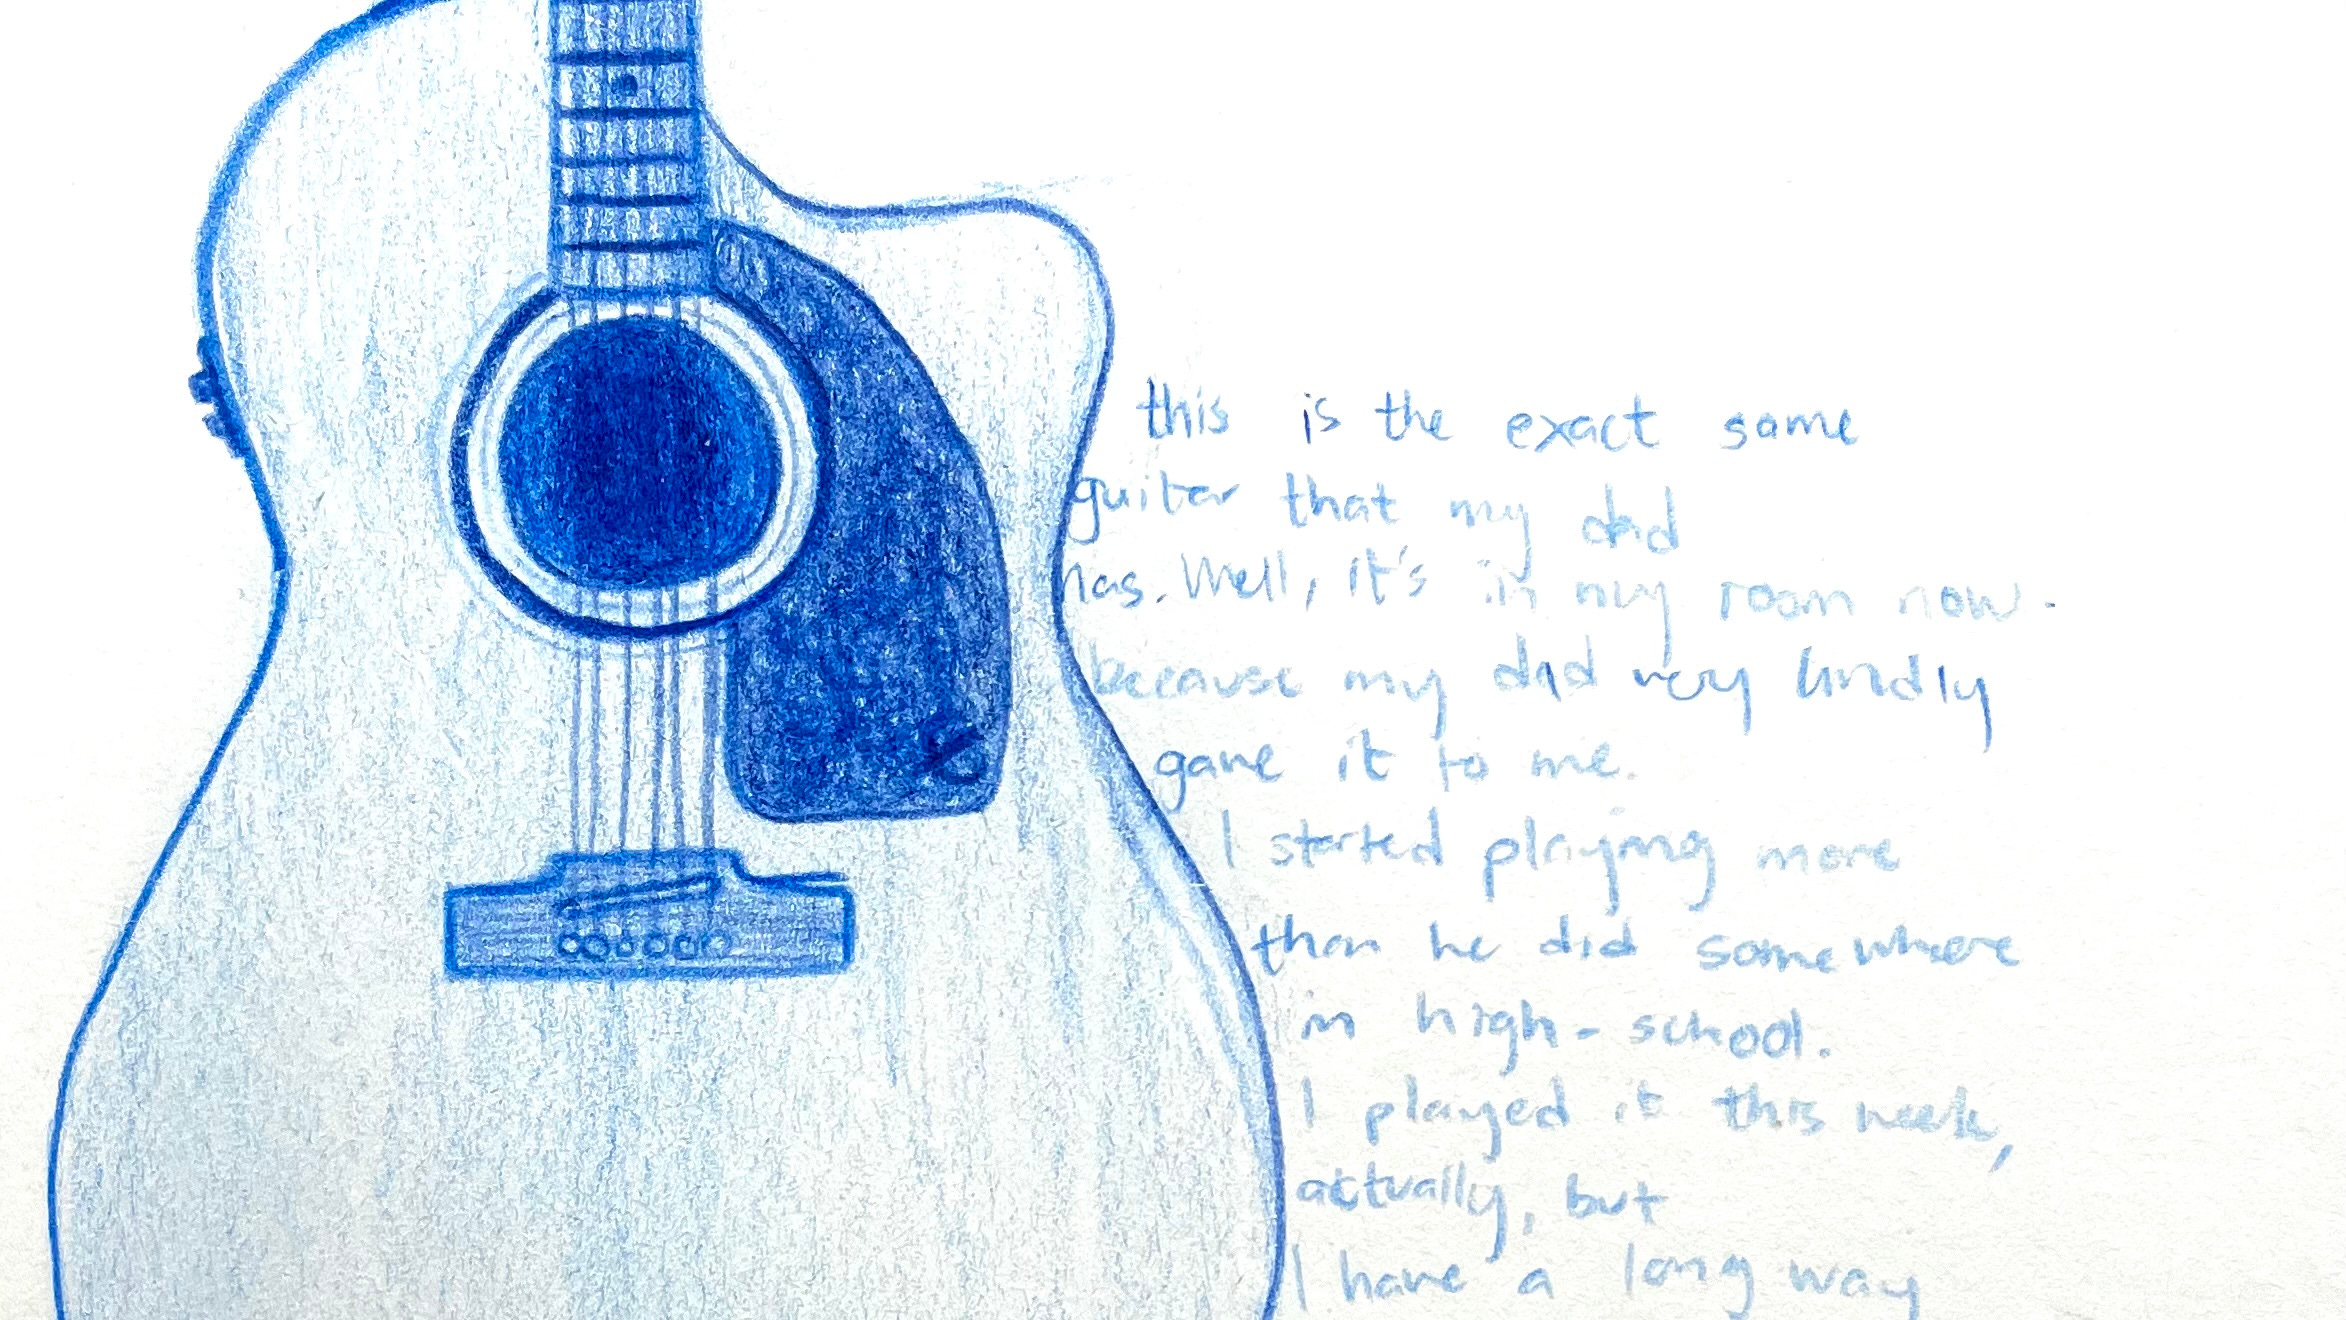 this is the exact same
guitar that my dad
has. Well, it's in my room now.
because my dad very kindly
gave it to me.
I started playing more
than he did somewhere
in high-school.
I played it this week,
actually, but
I have a long way